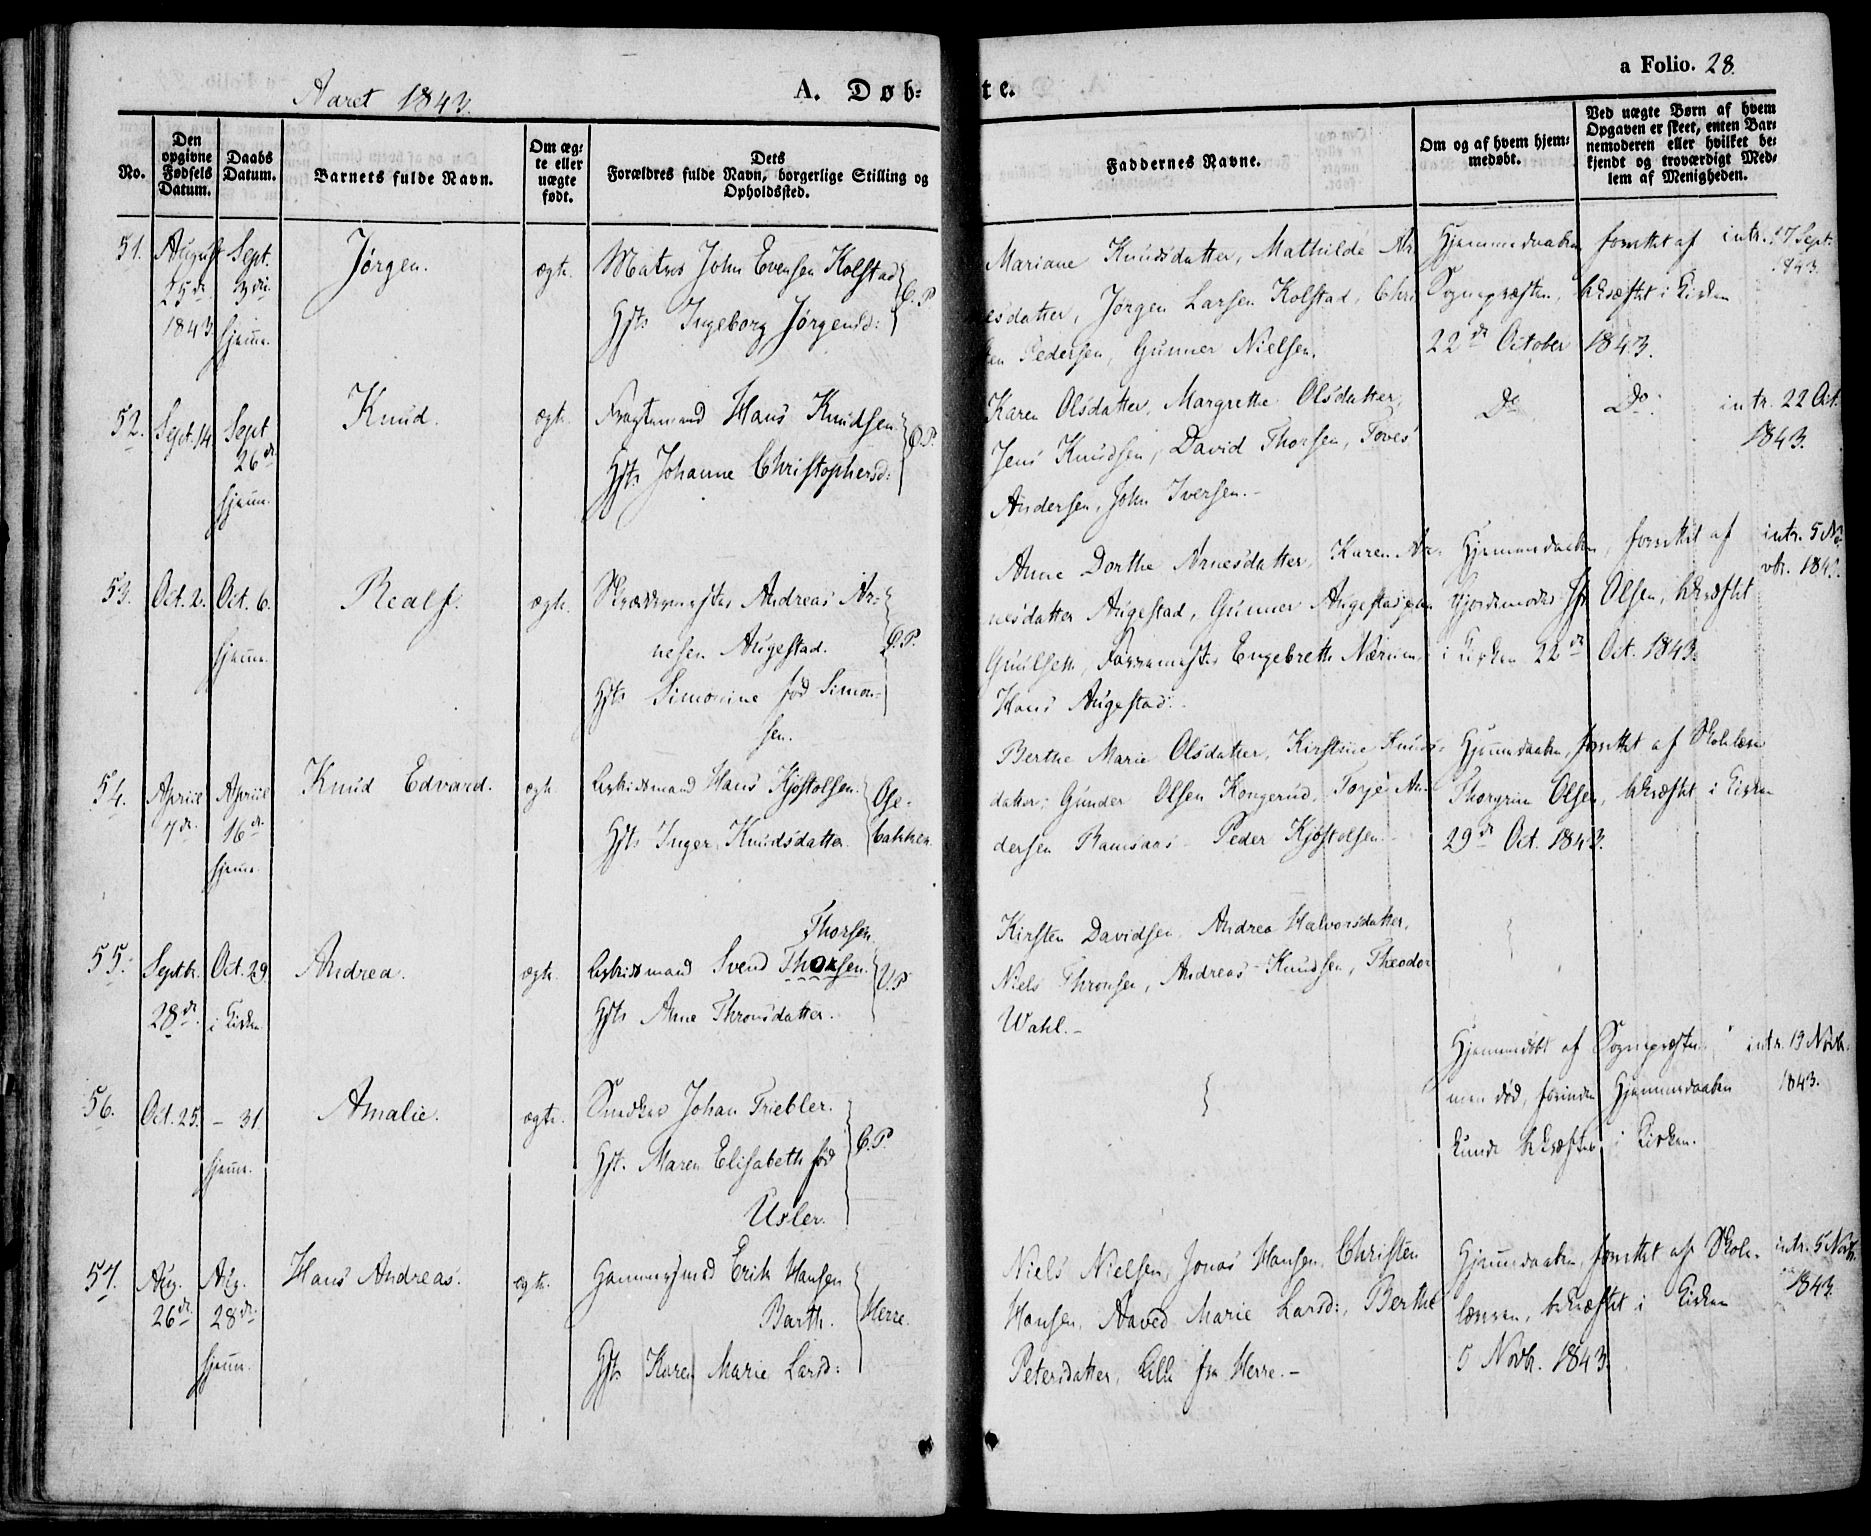 Aaret 1843.
A. Døb-
te.
a Folio. 28.
No.
Den opgivne Fødsels Datum.
Daabs Datum.
Barnets fulde Navn.
Om æg-
te eller
uægte
født.
Dets
Forældres fulde Navn, borgerlige Stilling og
Opholdssted.
Faddernes Navne.
Om og af hvem hjem-
medøbt.
Ved uægte Børn af hvem
Opgaven er skeet, enten Bar-
nemoderen eller hvilket be-
kjendt og troværdigt Med-
lem af Menigheden.
51.
August
25de
1843
Sept.
3die
hjem.
Jørgen.
ægte.
Matros John Evensen Kolstad
Hst. Ingeborg Jørgensd:
Mariane Knudsdatter, Mathilde An-
esdatter, Jørgen Larsen Kolstad, Chri
ten Pedersen, Gunner Nielsen.
Hjemmedaaben forrettet af
Sognepræsten, bekræftet i Kirken
22de October 1843.
intr. 17 Sept.
1843.
52.
Sept. 14
Sept
26de
hjem.
Knud.
ægte.
Fragtemand Hans Knudsen
Hst. Johanne Christophersd:
Karen Olsdatter, Margrethe Olsdatter,
Jens Knudsen, David Thorsen, Toves
Andersen, John Iversen.-
Do
Do.
intr. 22 Oct.
1843.
53.
Oct. 2.
Oct. 6.
hjem.
Realf.
ægte.
Skræddermester Andreas Ar-
nesen Augestad.
Hst. Simonine fød Simon-
sen.
Anne Dorthe Arnesdatter, Karen Ar-
nesdatter Augestad, Gunner Augestad
Garvermester Engebreth Nærum,
Hans Augestad.
Hjemmedaaben, forrettet af
Gjordemoder Olsen, bekræftet
i Kirken 22de Oct. 1843.
intr. 5 No-
vbr. 1843.
54.
Apriil
7de
Apriil
16de
hjem.
Knud Edvard.
ægte
Arbeidsmand Hans Kjøstolsen.
Hst. Inger Knudsdatter.
Ose-
bakken.
Berthe Marie Olsdatter, Kirstine Knuds-
datter, Gunder Olsen Kongerud, Torje An-
dersen Ramsaas - Peder Kjøstolsen-
Hjemmedaaben, forrettet af Skolelærer
Thorgrim Olsen, bekræftet i Kirken
29de Oct. 1843.
55.
Septbr.
28de
Oct. 29.
i Kirken
Andrea.
ægte.
Thorsen
Arbeidsmand Svend Thorsen.
Hst. Anne Thronsdatter.
V.P
Kirsten Davidsen, Andrea Halvorsdatter,
Niels Thronsen, Andreas Knudsen, Theodor
Wahl.-
56.
Oct. 25.
- 31.
hjem.
Amalie.
ægte.
Snedker Johan Triebler.
Hst. Maren Elisabeth fød
Usler.
Hjemmedøbt af Sognepræsten,
men død, forinden Hjemmedaaben
kunde bekræftes i Kirken.
intr. 19 Novbr.
1843.
57.
Aug.
26de
Aug.
28de
hjem.
Hans Andreas.
ægte.
Erik Hansen
Barth.
Hst. Karen Marie Larsd:
Herre.
Niels Nielsen, Jonas Hansen, Christen
Hansen, Marie Larsd:, Berthe
Petersdatter, alle fra Herre.-
Hjemmedaaben forrettet af Skole-
læreren, bekræftet i Kirken
5 Novbr. 1843.
intr. 5 Novbr.
1843.